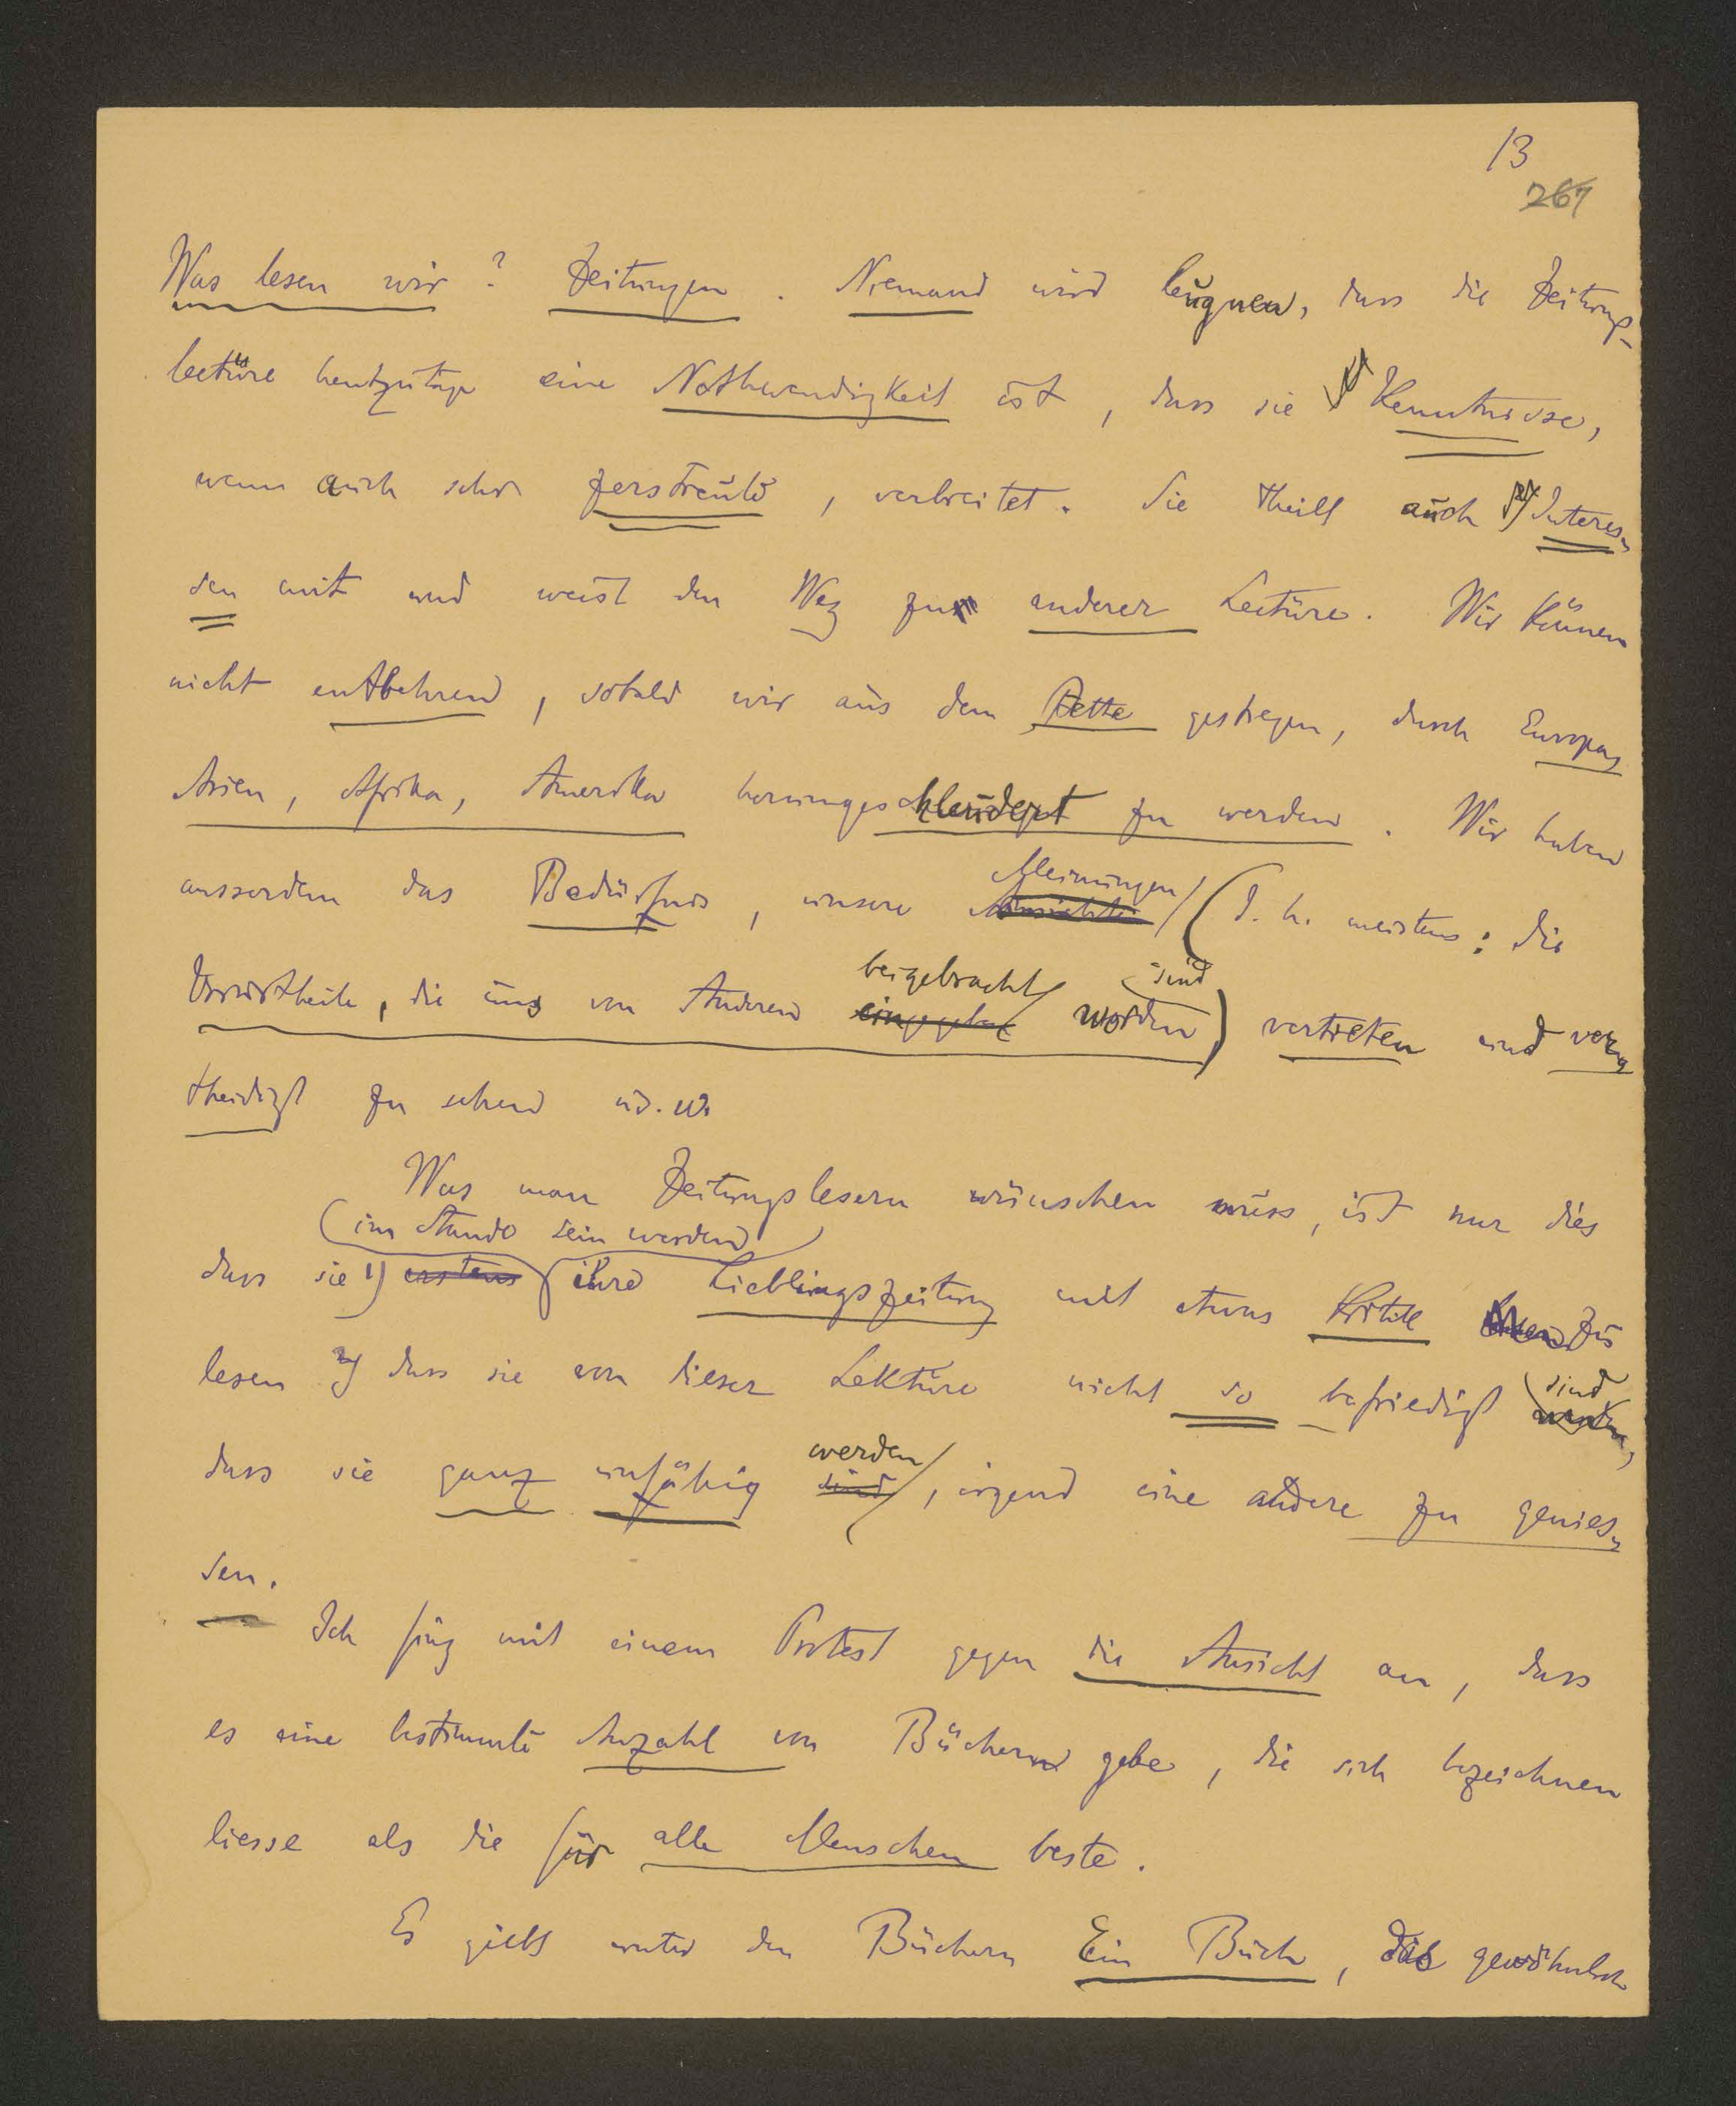 13
267
Was lesen wir? Zeitungen. Niemand wird leugnen, dass die Zeitungs-
lectüre heutzutage eine Nothwendigkeit ist, dass sie 1) Kenntnisse,
wenn auch sehr zerstreute, verbreitet. Sie theilt auch 2) Interes-
sen mit und weist den Weg zu anderer Lectüre. Wir können
nicht entbehren, sobald wir aus dem Bette gestiegen, durch Europa,
Asien, Afrika, Amerika herumgeschleudert zu werden. Wir haben
ausserdem das Bedürfnis, unsere Ansichten Meinungen (d. h. meistens: die
Vorurtheile, die uns von Anderen eingegeben beigebracht worden sind) vertreten und ver-
theidigt zu sehen u.s.w.
Was man Zeitungslesern wünschen muss, ist nur dies
(im Stande sein werden)
dass sie 1) erstens ihre Lieblingszeitung mit etwas Kritik zu
lesen 2) dass sie von dieser Lektüre nicht so befriedigt sind
dass sie ganz unfähig sind werden, irgend eine andere zu genies-
sen.
Ich fing mit einem Protest gegen die Ansicht an, dass
es eine bestimmte Anzahl von Büchern gebe, die sich bezeichnen
liesse als die für alle Menschen beste.
Es giebt unter den Büchern Ein Buch, das gewöhnlich